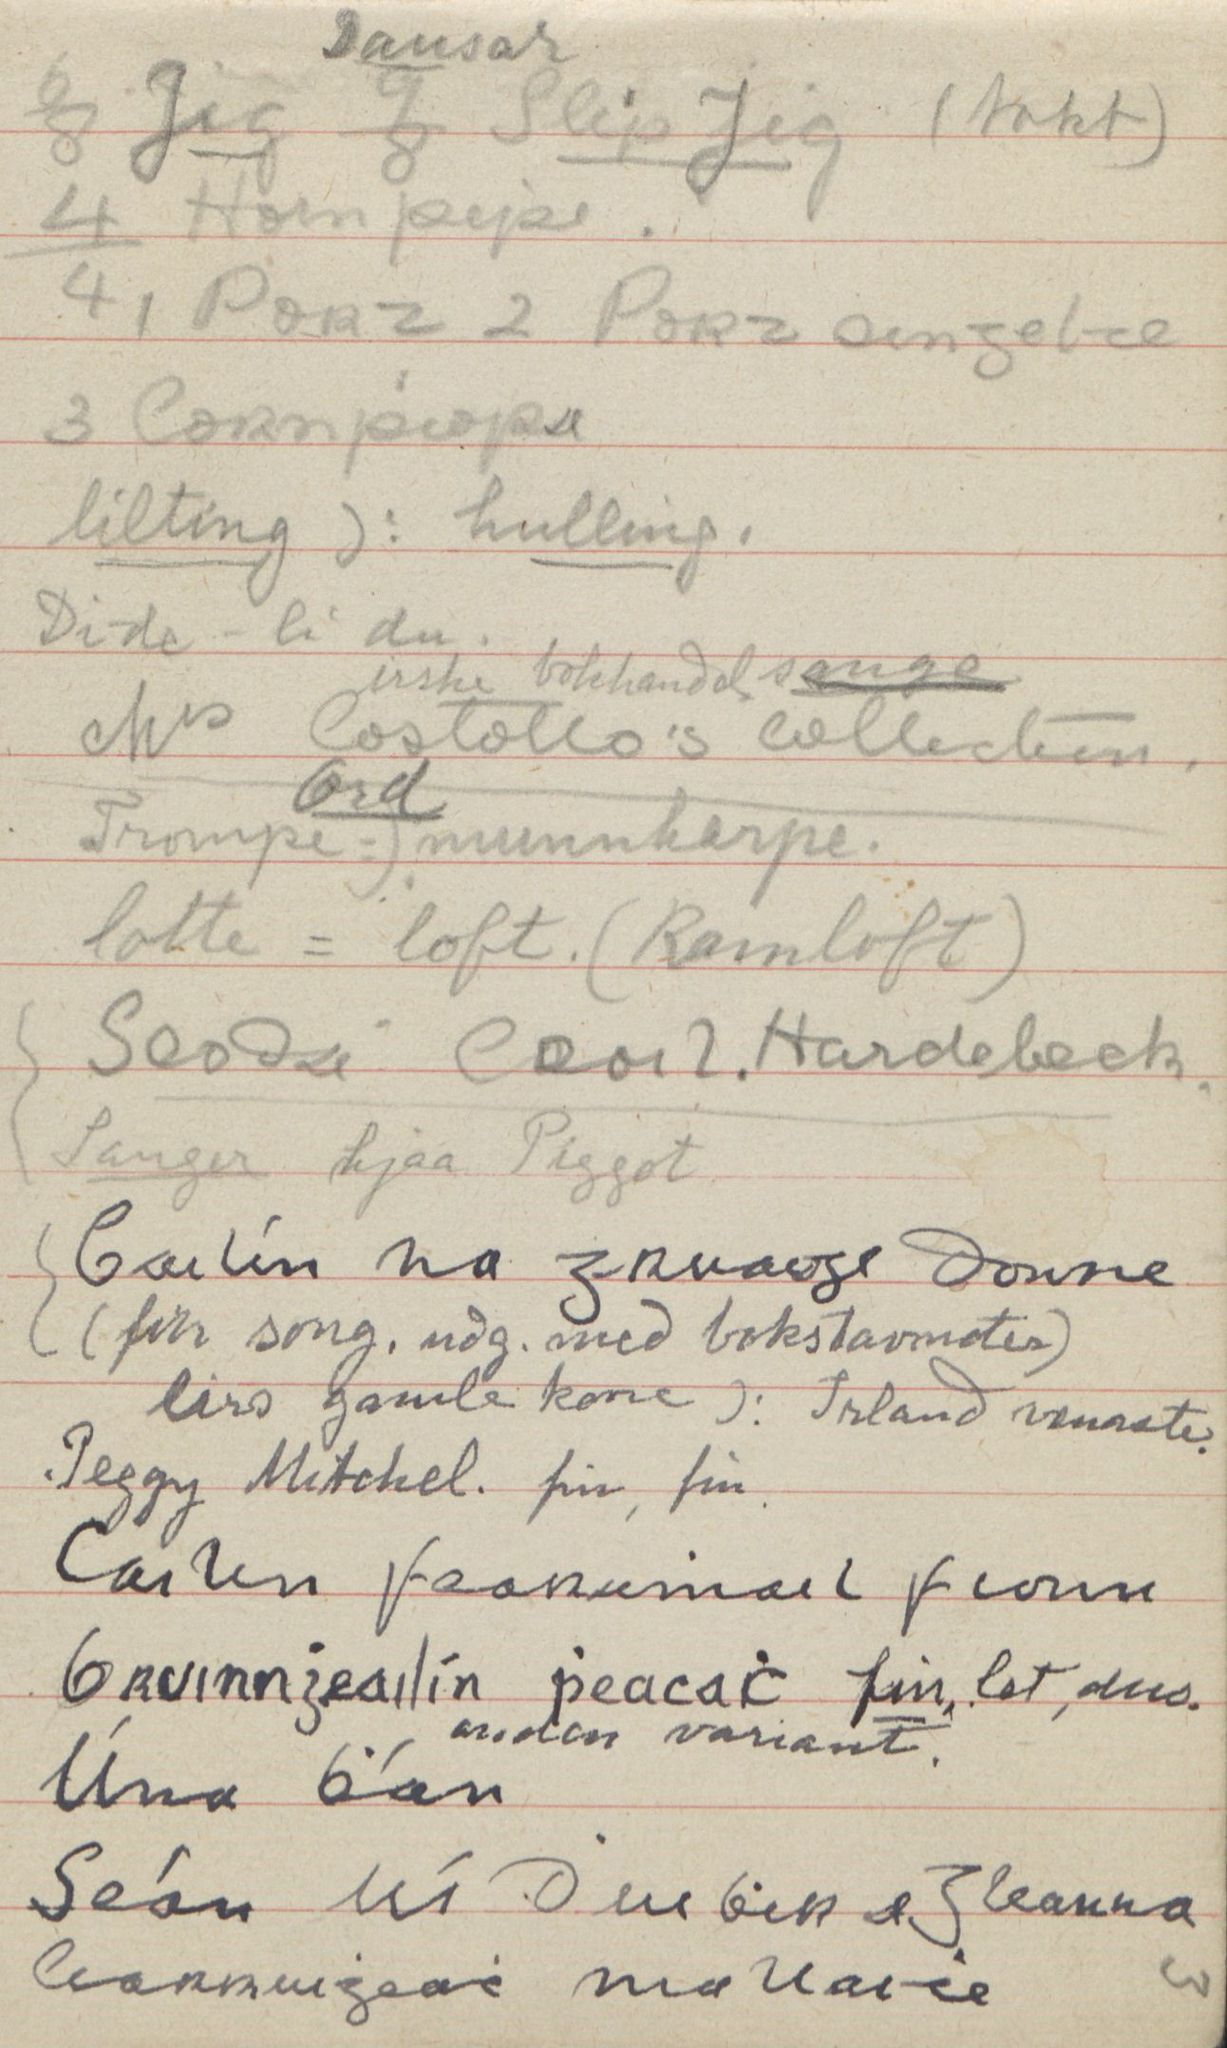 Dansar
6/8 Jig 9/8 Slip Jig (takt)
4 Hornpipe.
4 1 Port 2 Port singelte
3 Cornpíopa
lilting ): hulling.
Di-de - li du.
irske bokhandel sange
Mrs Costello's collection.
Ord
Trompe =) munnharpe.
lofte = loft. (Ramloft)
Seoda Ceoil. Hardebeck.
Sanger hjaa Piggot
Cailín na gruaige Donne
(fin song. udg. med bokstavnoter)
gamle kone ): Irland
Peggy Mitchel. fin, fin.
Cailín fearamail fionn
bruinngeailín peacaċ fin, let, dus.
anden variant.
Úna ḃán
Seán Uí Duiḃir a Ġleanna